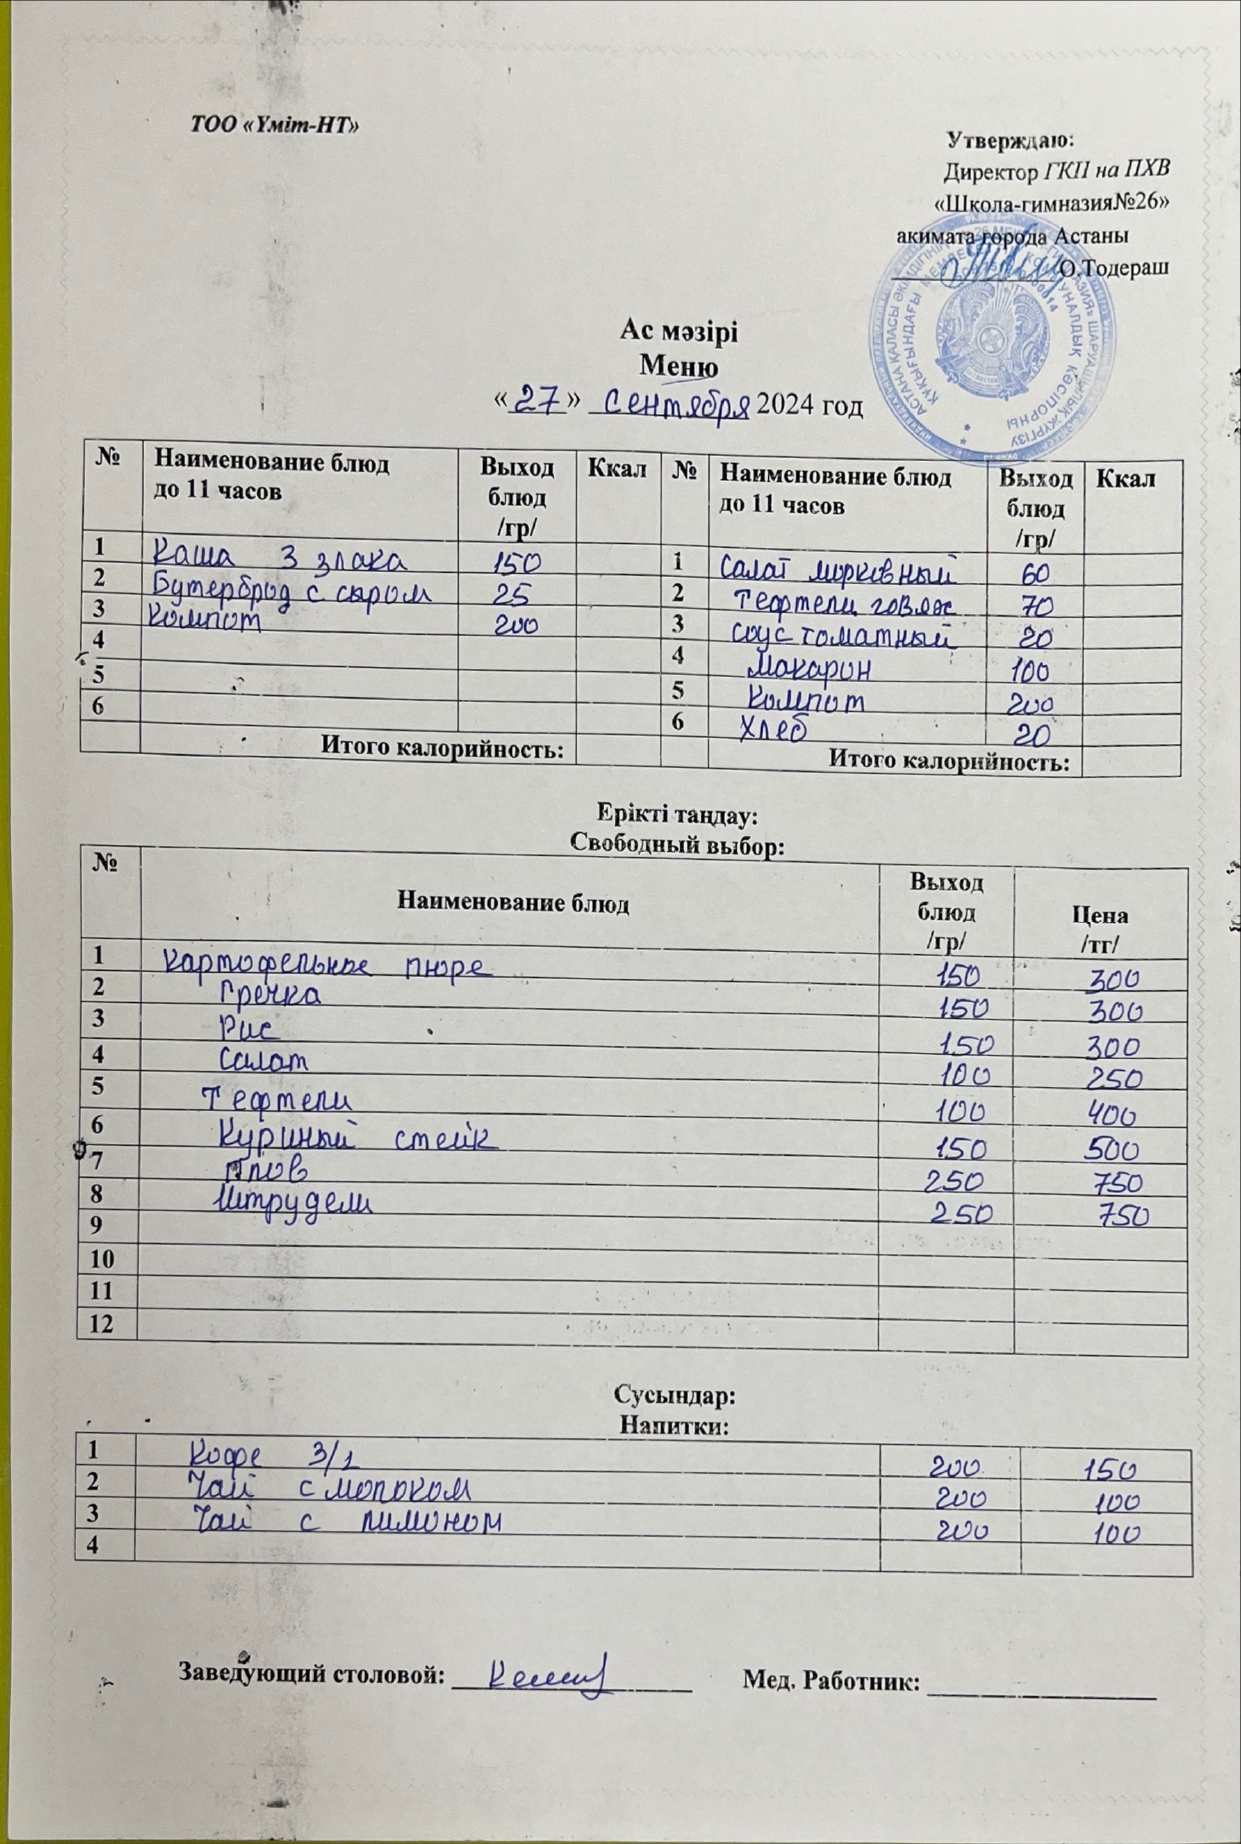 ТОО «Үміт-НТ»
Утверждаю:
Директор ГКП на ПХВ
«Школа-гимназия№26»
акимата города Астаны
О.Тодераш
Ас мәзірі
Меню
«27» Сентября 2024 год
№ Наименование блюд до 11 часов Выход блюд /гр/ Ккал № Наименование блюд до 11 часов Выход блюд /гр/ Ккал
1 Каша 3 злака 150 1 Салат морковный 60
2 Бутерброд с сыром 25 2 Тефтели говяж 70
3 Компот 200 3 соус томатный 20
4 4 Макарон 100
5 5 Компот 200
6 6 Хлеб 20
Итого калорийность: Итого калорийность:
Ерікті таңдау:
Свободный выбор:
№ Наименование блюд Выход блюд /гр/ Цена /тг/
1 Картофельное пюре 150 300
2 Гречка 150 300
3 Рис 150 300
4 Салат 100 250
5 Тефтели 100 400
6 Куриный стейк 150 500
7 Плов 250 750
8 Штрудели 250 750
9
10
11
12
Сусындар:
Напитки:
1 Кофе 3/1 200 150
2 Чай с молоком 200 100
3 Чай с лимоном 200 100
4
Заведующий столовой: Мед. Работник: